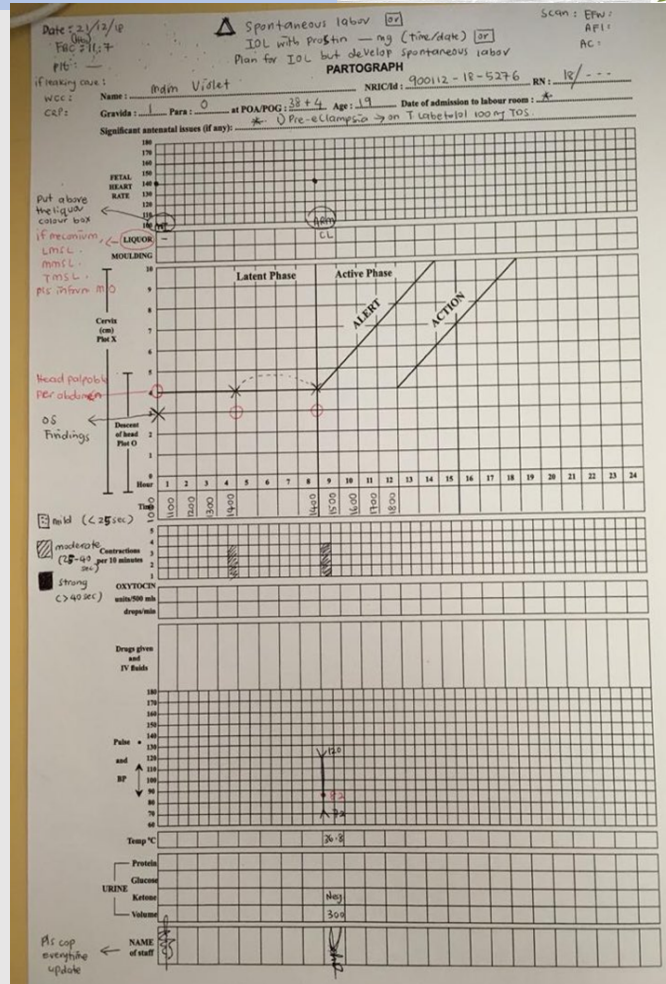 Date : 21/12/18
(Hb)
FBC = 11.7
plt : —
if leaking cave :
WCC :
CRP :
Δ Spontaneous labor or
IOL with prostin — mg (time/date) or
Plan for IOL but develop spontaneous labor
Scan : EFW :
AFI :
AC :
PARTOGRAPH
Name : mdm Violet NRIC/Id : 900112-18-5276 RN : 18/---
Gravida : 1 Para : 0 at POA/POG : 38+4 Age : 19 Date of admission to labour room : *
Significant antenatal issues (if any): * 1) Pre-eclampsia → on T Labetolol 100mg TDS.
180
170
160
150
140
130
120
110
100
FETAL
HEART
RATE
Put above
the liquor
colour box
MI
ARM
if meconium,
LMSL.
MMSL.
TMSL.
pls inform MO
LIQUOR – CL
MOULDING
10
9
8
7
6
5
4
3
2
1
0
Latent Phase Active Phase
ALERT
ACTION
Cervix
(cm)
Plot X
Head palpable
per abdomen
OS
Findings
Descent
of head
Plot O
Hour 1 2 3 4 5 6 7 8 9 10 11 12 13 14 15 16 17 18 19 20 21 22 23 24
Time 1000 1100 1200 1300 1400 1400 1500 1600 1700 1800
mild (<25sec)
moderate
(25-40
sec)
strong
(>40sec)
5
4
3
2
1
Contractions
per 10 minutes
OXYTOCIN
units/500 mls
drops/min
Drugs given
and
IV fluids
180
170
160
150
140
130
120
110
100
90
80
70
60
Pulse •
and
BP
120
82
72
Temp °C 36.8
URINE
Protein
Glucose
Ketone Neg
Volume 300
NAME
of staff
Pls cop
everytime
update